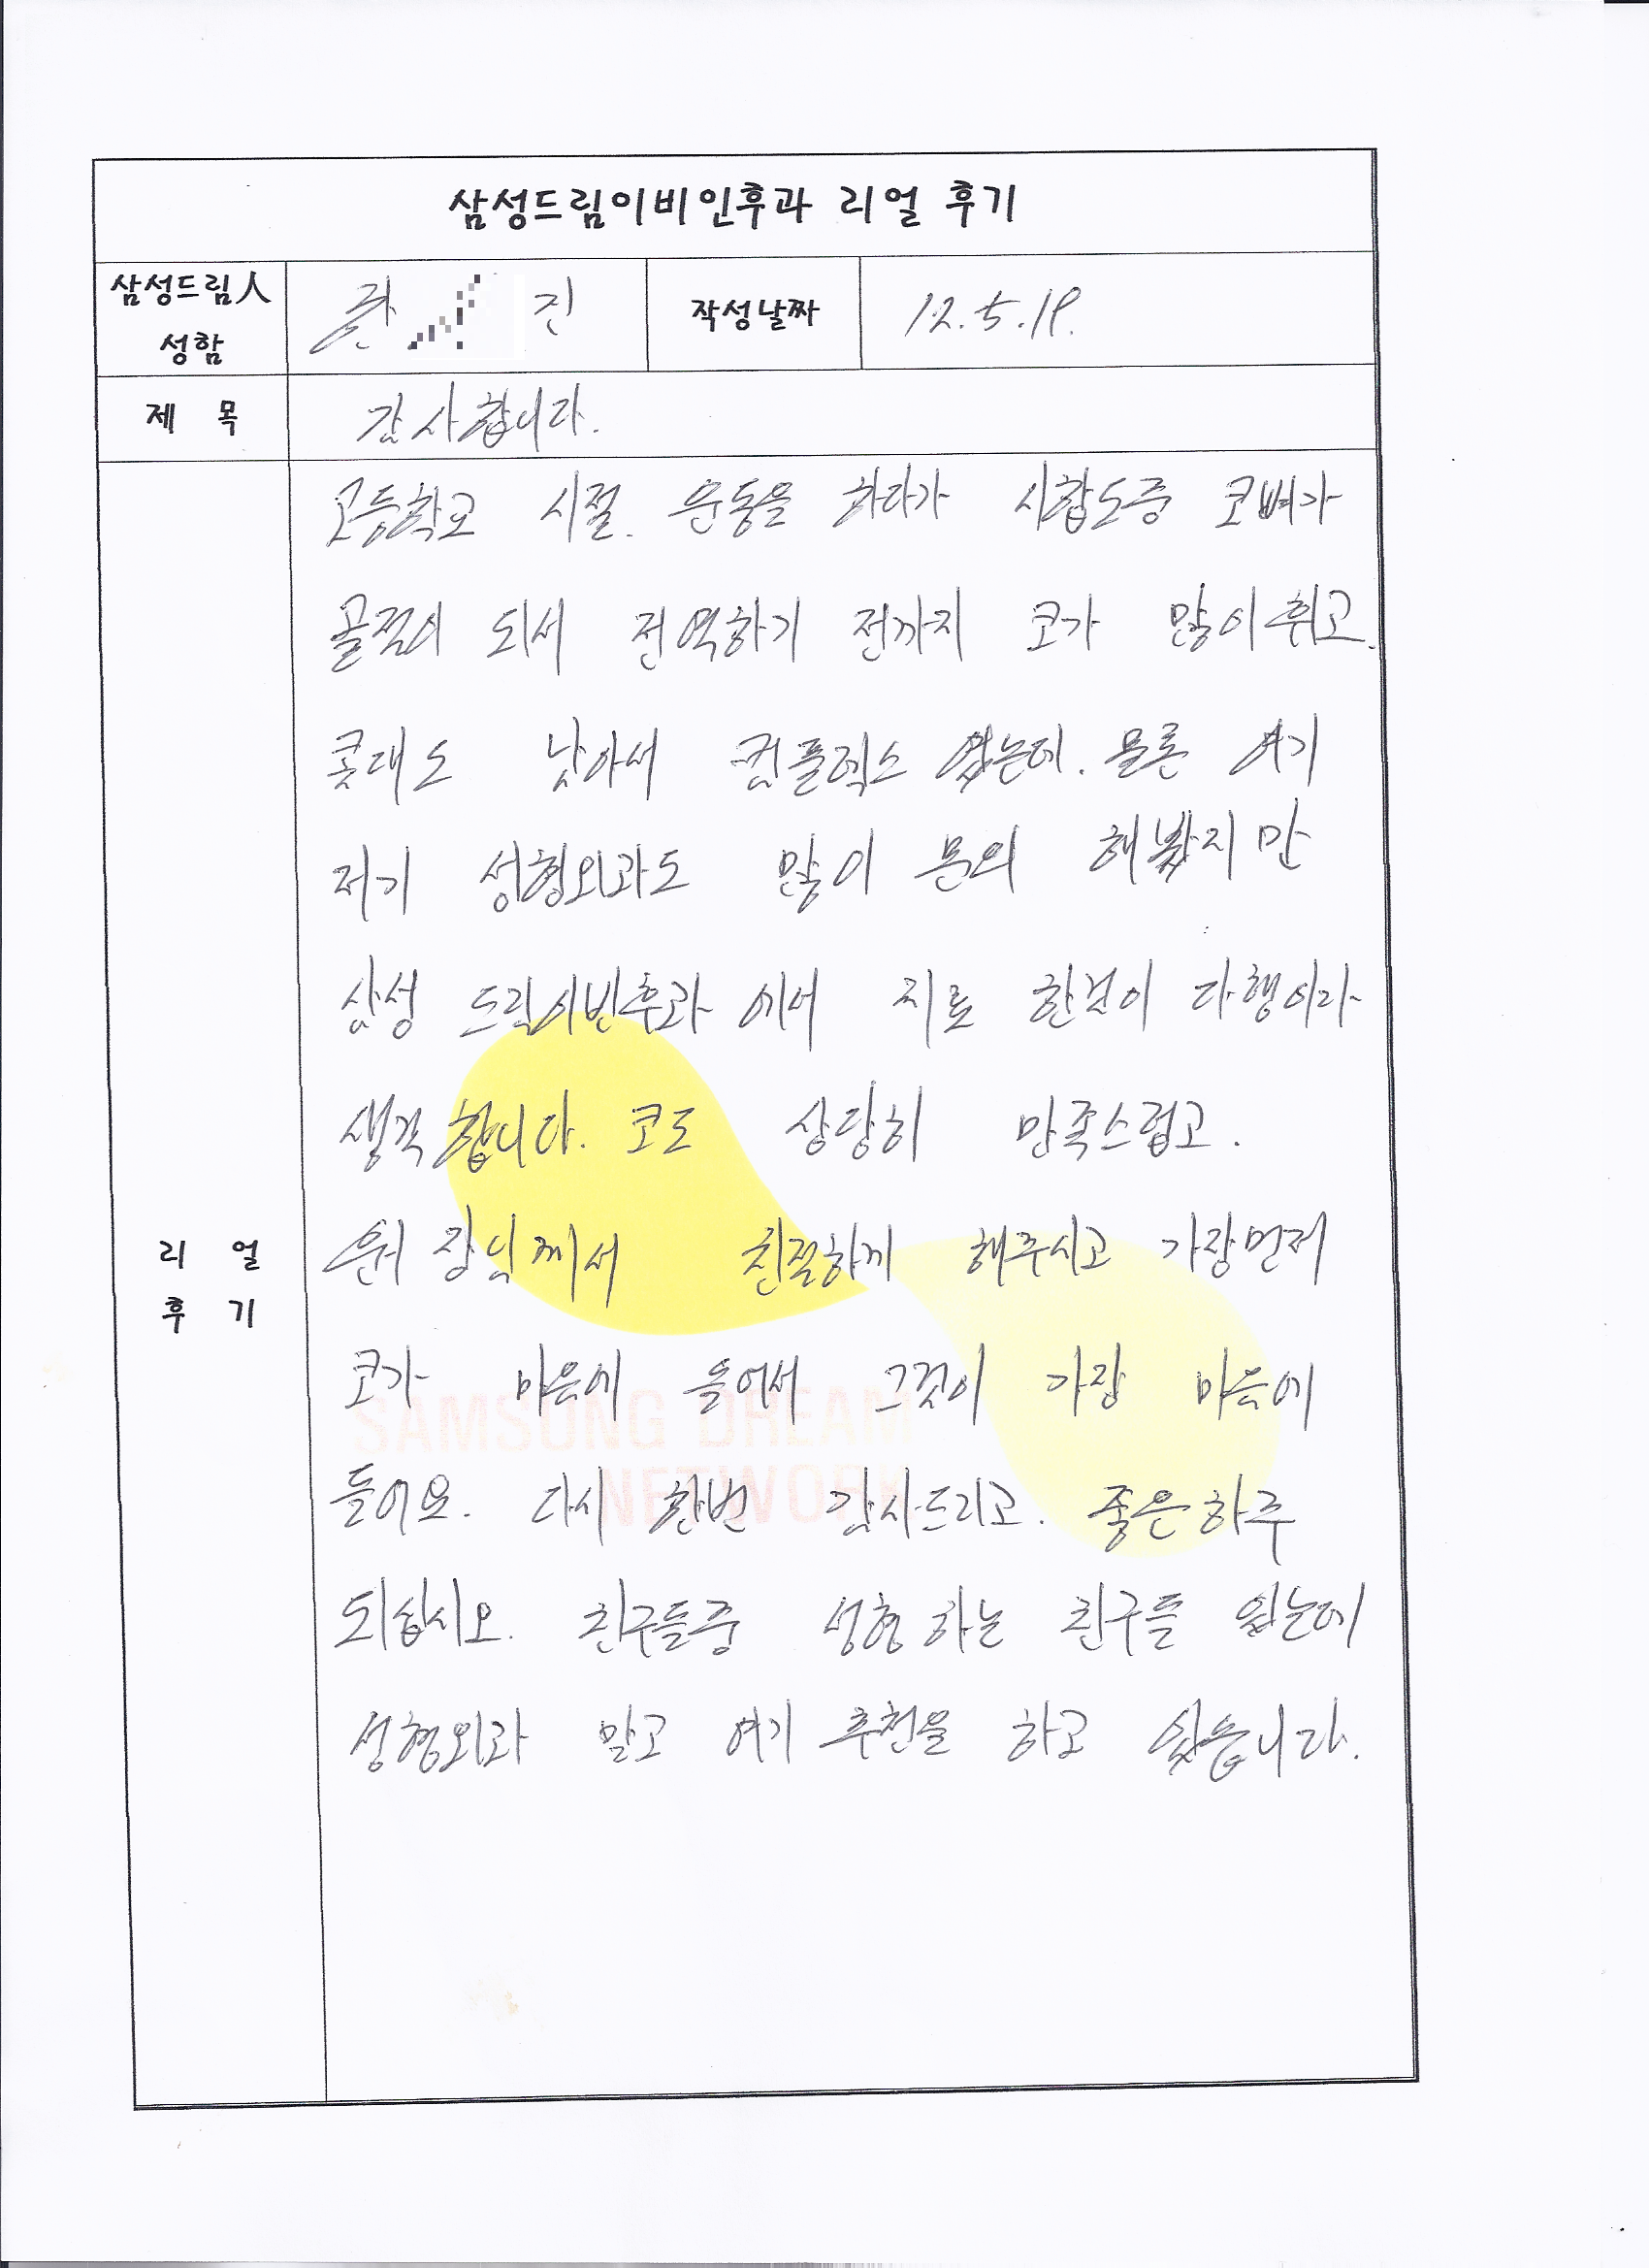 삼성드림이비인후과 리얼 후기
삼성드림人
성함
진
작성날짜
12.5.19.
제 목
감사합니다.
고등학교 시절. 운동을 하다가 시합도중 코뼈가
골절이 되서 전역하기 전까지 코가 많이 휘고.
콧대도 낮아서 컴플렉스 였는데. 물론 여기
저기 성형외과도 많이 문의 해봤지만
삼성 드림이빈후과 에서 치료 한것이 다행이라
생각합니다. 코도 상당히 만족스럽고.
원장님께서 친절하게 해주시고 가장먼저
코가 마음에 들어서 그것이 가장 마음에
들어요. 다시 한번 감사드리고. 좋은하루
되십시오. 친구들중 성형하는 친구들 있는데
성형외과 말고 여기 추천을 하고 싶습니다.
리 얼
후 기
SAMSUNG DREAM
NETWORK